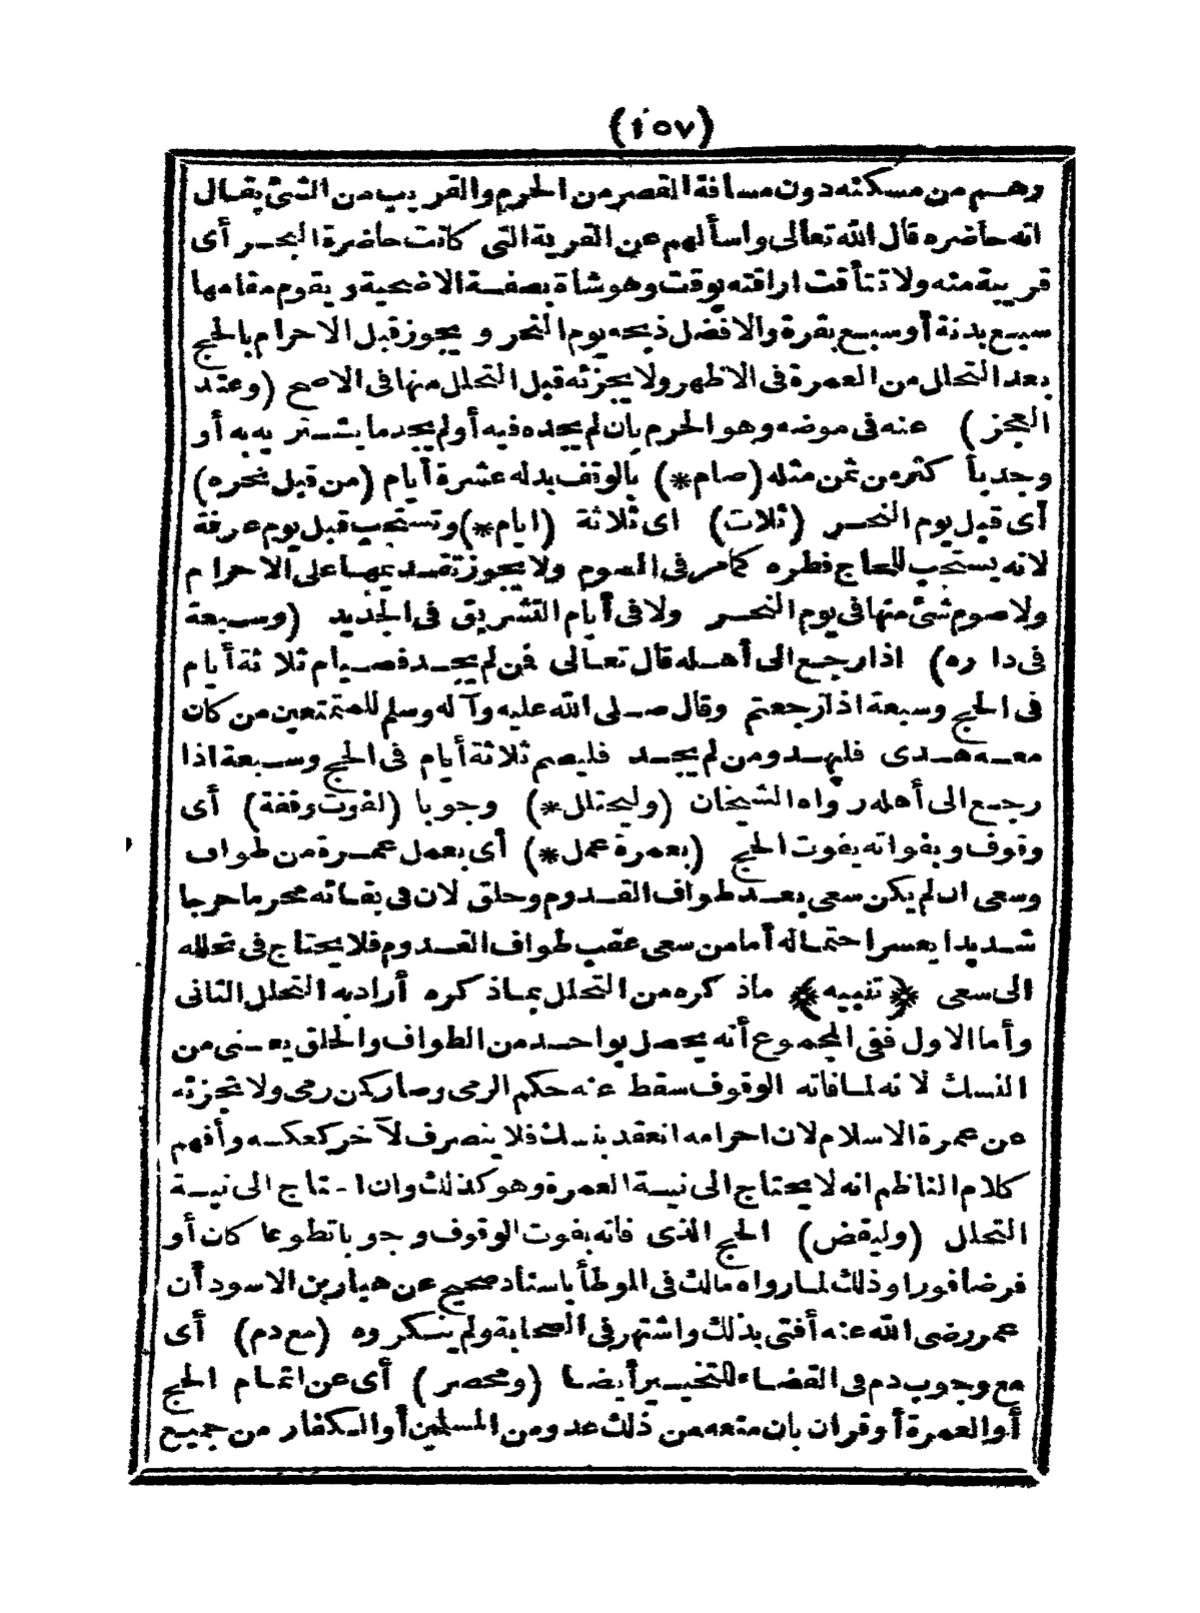 (١٥٧)
وهم من مسكنه دون مسافة القصر من الحرم والقريب من الشئ يقال
انه حاضره قال الله تعالى واسألهم عن القرية التى كانت حاضرة البحر أى
قريبة منه ولا تتأقت اراقته بوقت وهو شاة بصفة الاضحية ويقوم مقامها
سبع بدنة أو سبع بقرة والافضل ذبحه يوم النحر ويجوز قبل الاحرام بالحج
بعد التحلل من العمرة فى الاظهر ولا يجزئه قبل التحلل منها فى الاصح (وعند
العجز) عنه فى موضعه وهو الحرم بان لم يجده فيه أو لم يجد ما يشتريه به أو
وجد بأكثر من ثمن مثله (صام*) بالوقف بدله عشرة أيام (من قبل نحره)
أى قبل يوم النحر (ثلاث) اى ثلاثة (ايام*) وتستحب قبل يوم عرفة
لانه يستحب للحاج فطره كما مر فى الصوم ولا يجوز تقديمها على الاحرام
ولا صوم شئ منها فى يوم النحر ولا فى أيام التشريق فى الجديد (وسبعة
فى داره) اذا رجع الى أهله قال تعالى فمن لم يجد فصيام ثلاثة أيام
فى الحج وسبعة اذا رجعتم وقال صلى الله عليه وآله وسلم للمتمتعين من كان
معه هدى فليهد ومن لم يجد فليصم ثلاثة أيام فى الحج وسبعة اذا
رجع الى أهله رواه الشيخان (وليحتلل*) وجوبا (لفوت وقفة) أى
وقوف وبفواته يفوت الحج (بعمرة عمل*) أى بعمل عمرة من طواف
وسعى ان لم يكن سعى بعد طواف القدوم وحلق لان فى بقائه محرما حرجا
شديدا يعسر احتماله أما من سعى عقب طواف القدوم فلا يحتاج فى تحلله
الى سعى ﴿تنبيه﴾ ما ذكره من التحلل بما ذكره أراد به التحلل الثانى
وأما الاول ففى المجموع أنه يحصل بواحد من الطواف والحلق يعنى من
النسك لانه لما فاته الوقوف سقط عنه حكم الرمى وصار كمن رمى ولا تجزئه
عن عمرة الاسلام لان احرامه انعقد بنسك فلا ينصرف لآخر كعكسه وأفهم
كلام الناظم انه لا يحتاج الى نية العمرة وهو كذلك وان احتاج الى نية
التحلل (وليقض) الحج الذى فاته بفوت الوقوف وجوبا تطوعا كان أو
فرضا فورا وذلك لما رواه مالك فى الموطأ باسناد صحيح عن هبار بن الاسود أن
عمر رضى الله عنه أفتى بذلك واشتهر فى الصحابة ولم ينكروه (مع دم) أى
مع وجوب دم فى القضاء للتخيير أيضا (ومحصر) أى عن اتمام الحج
أو العمرة أو قران بان منعه من ذلك عدو من المسلمين أو الكفار من جميع